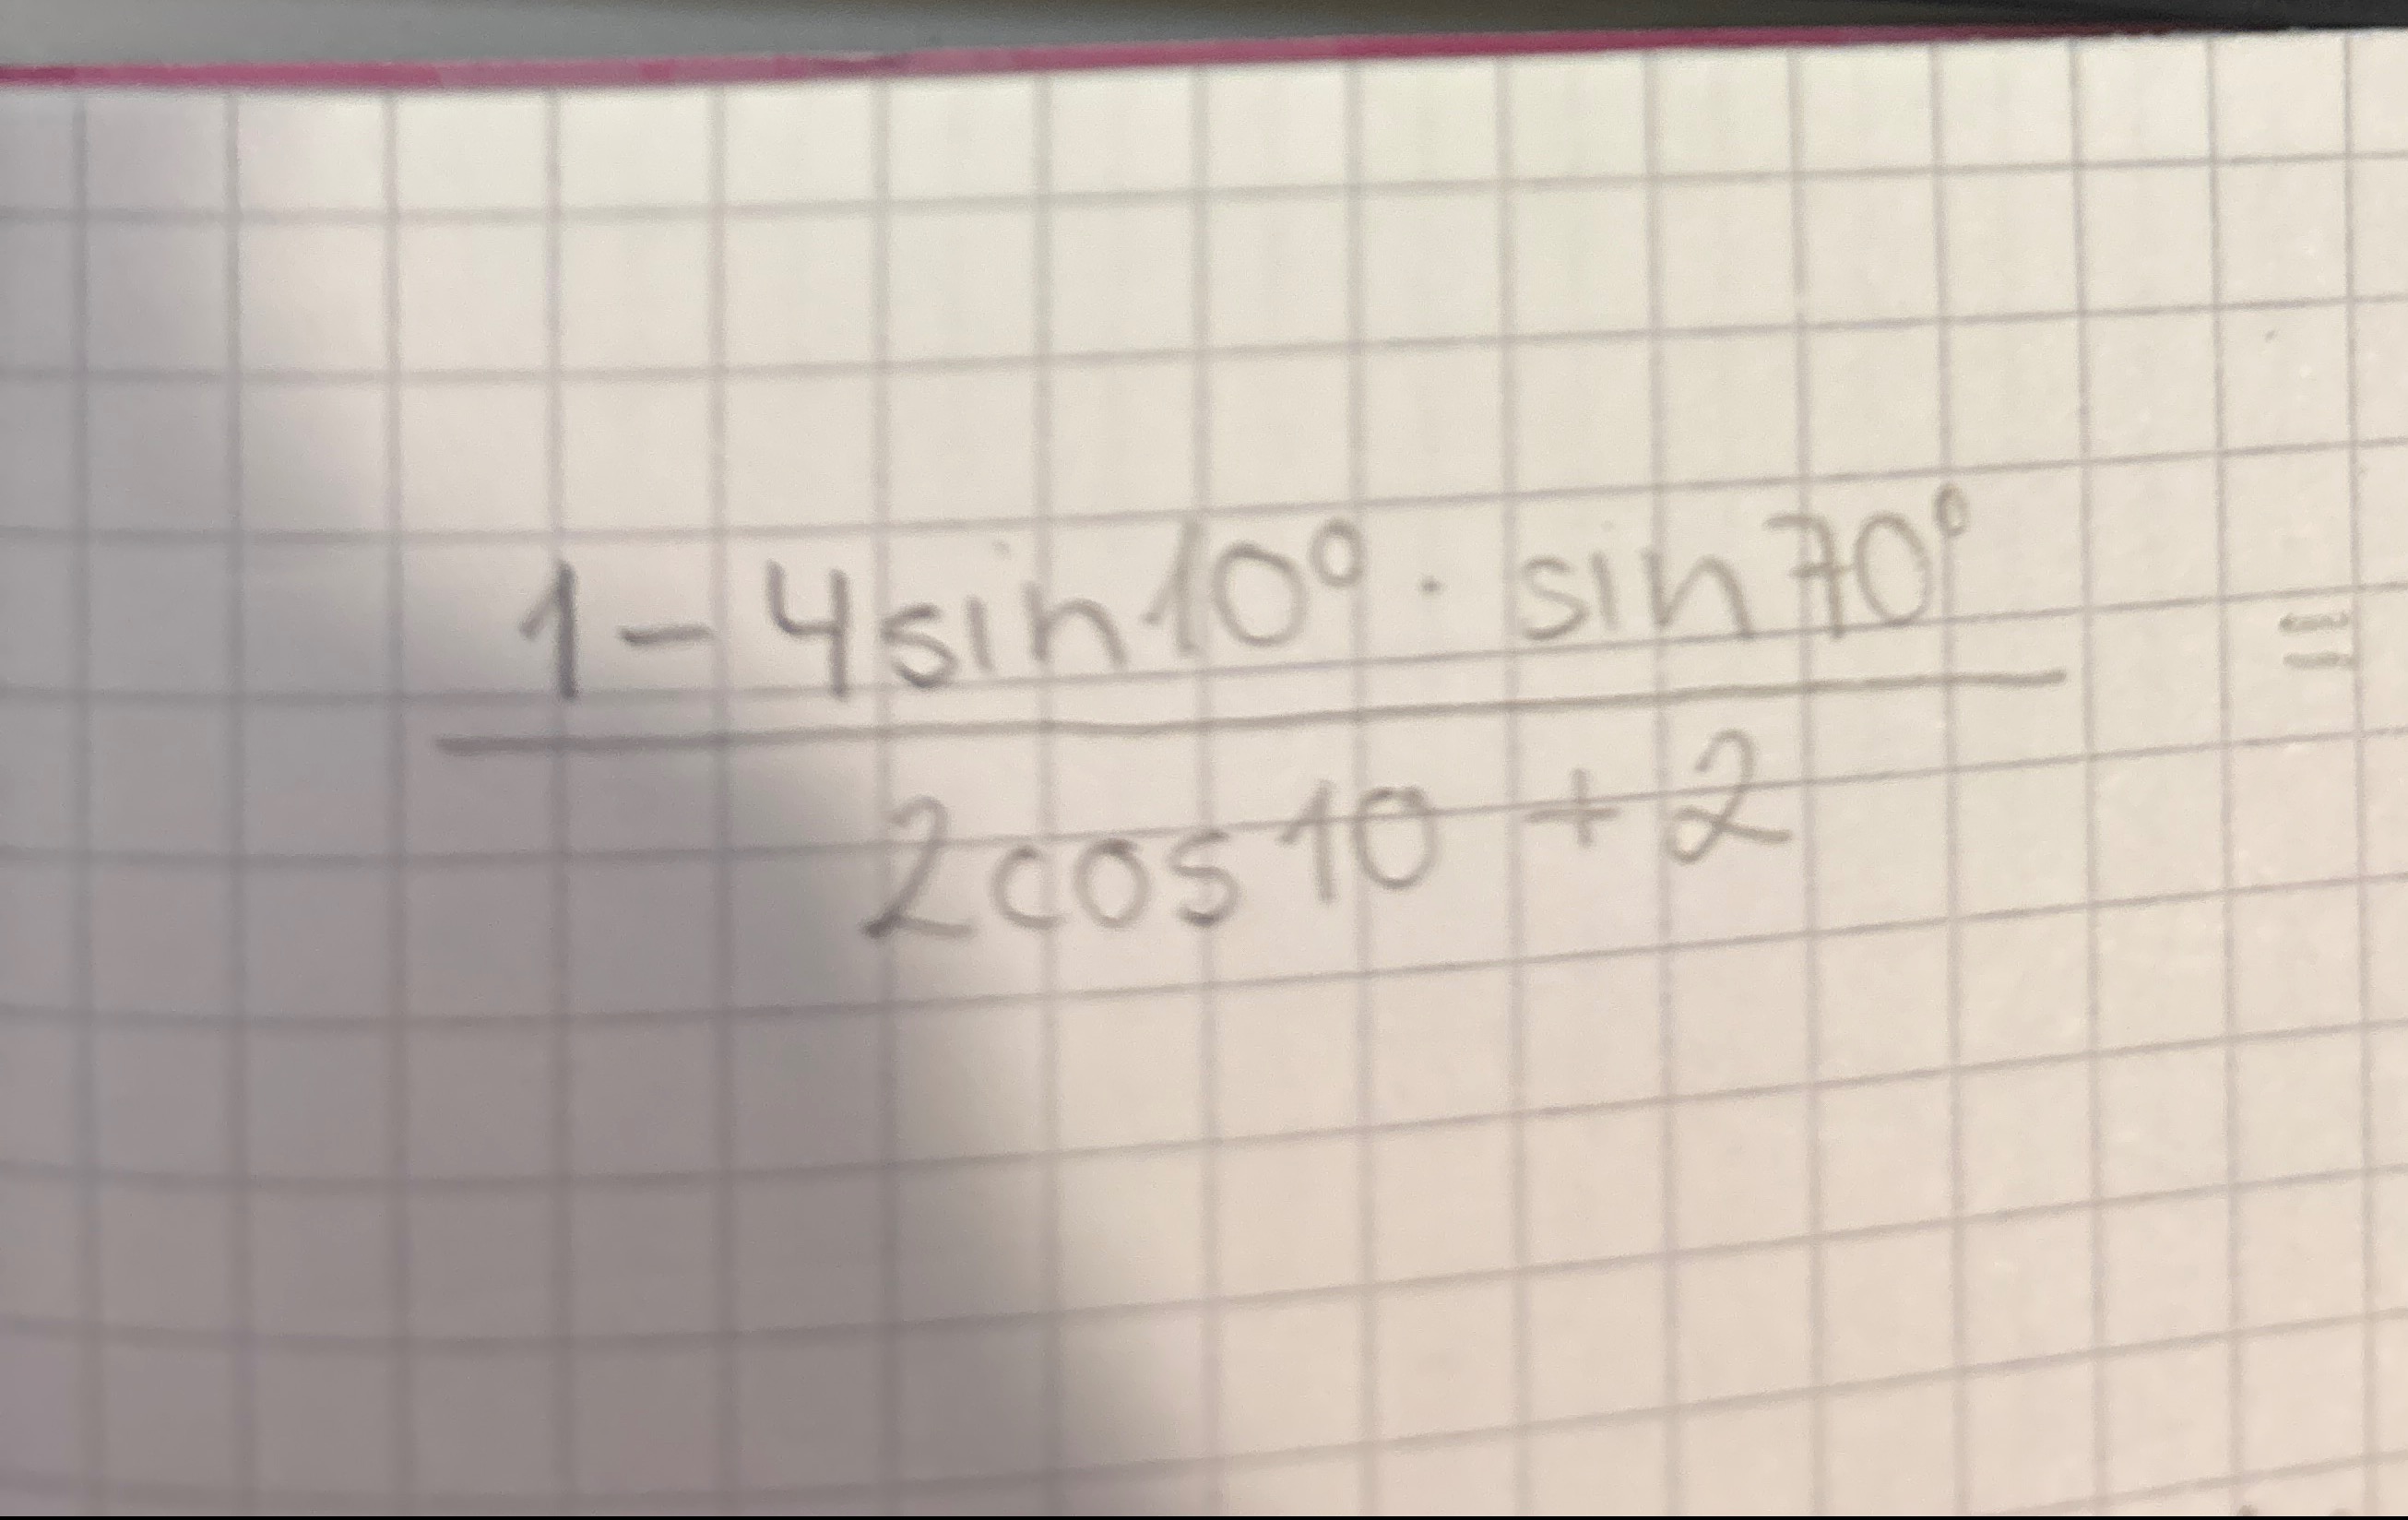 1 - 4sin10° · sin70°
=
2cos10 + 2